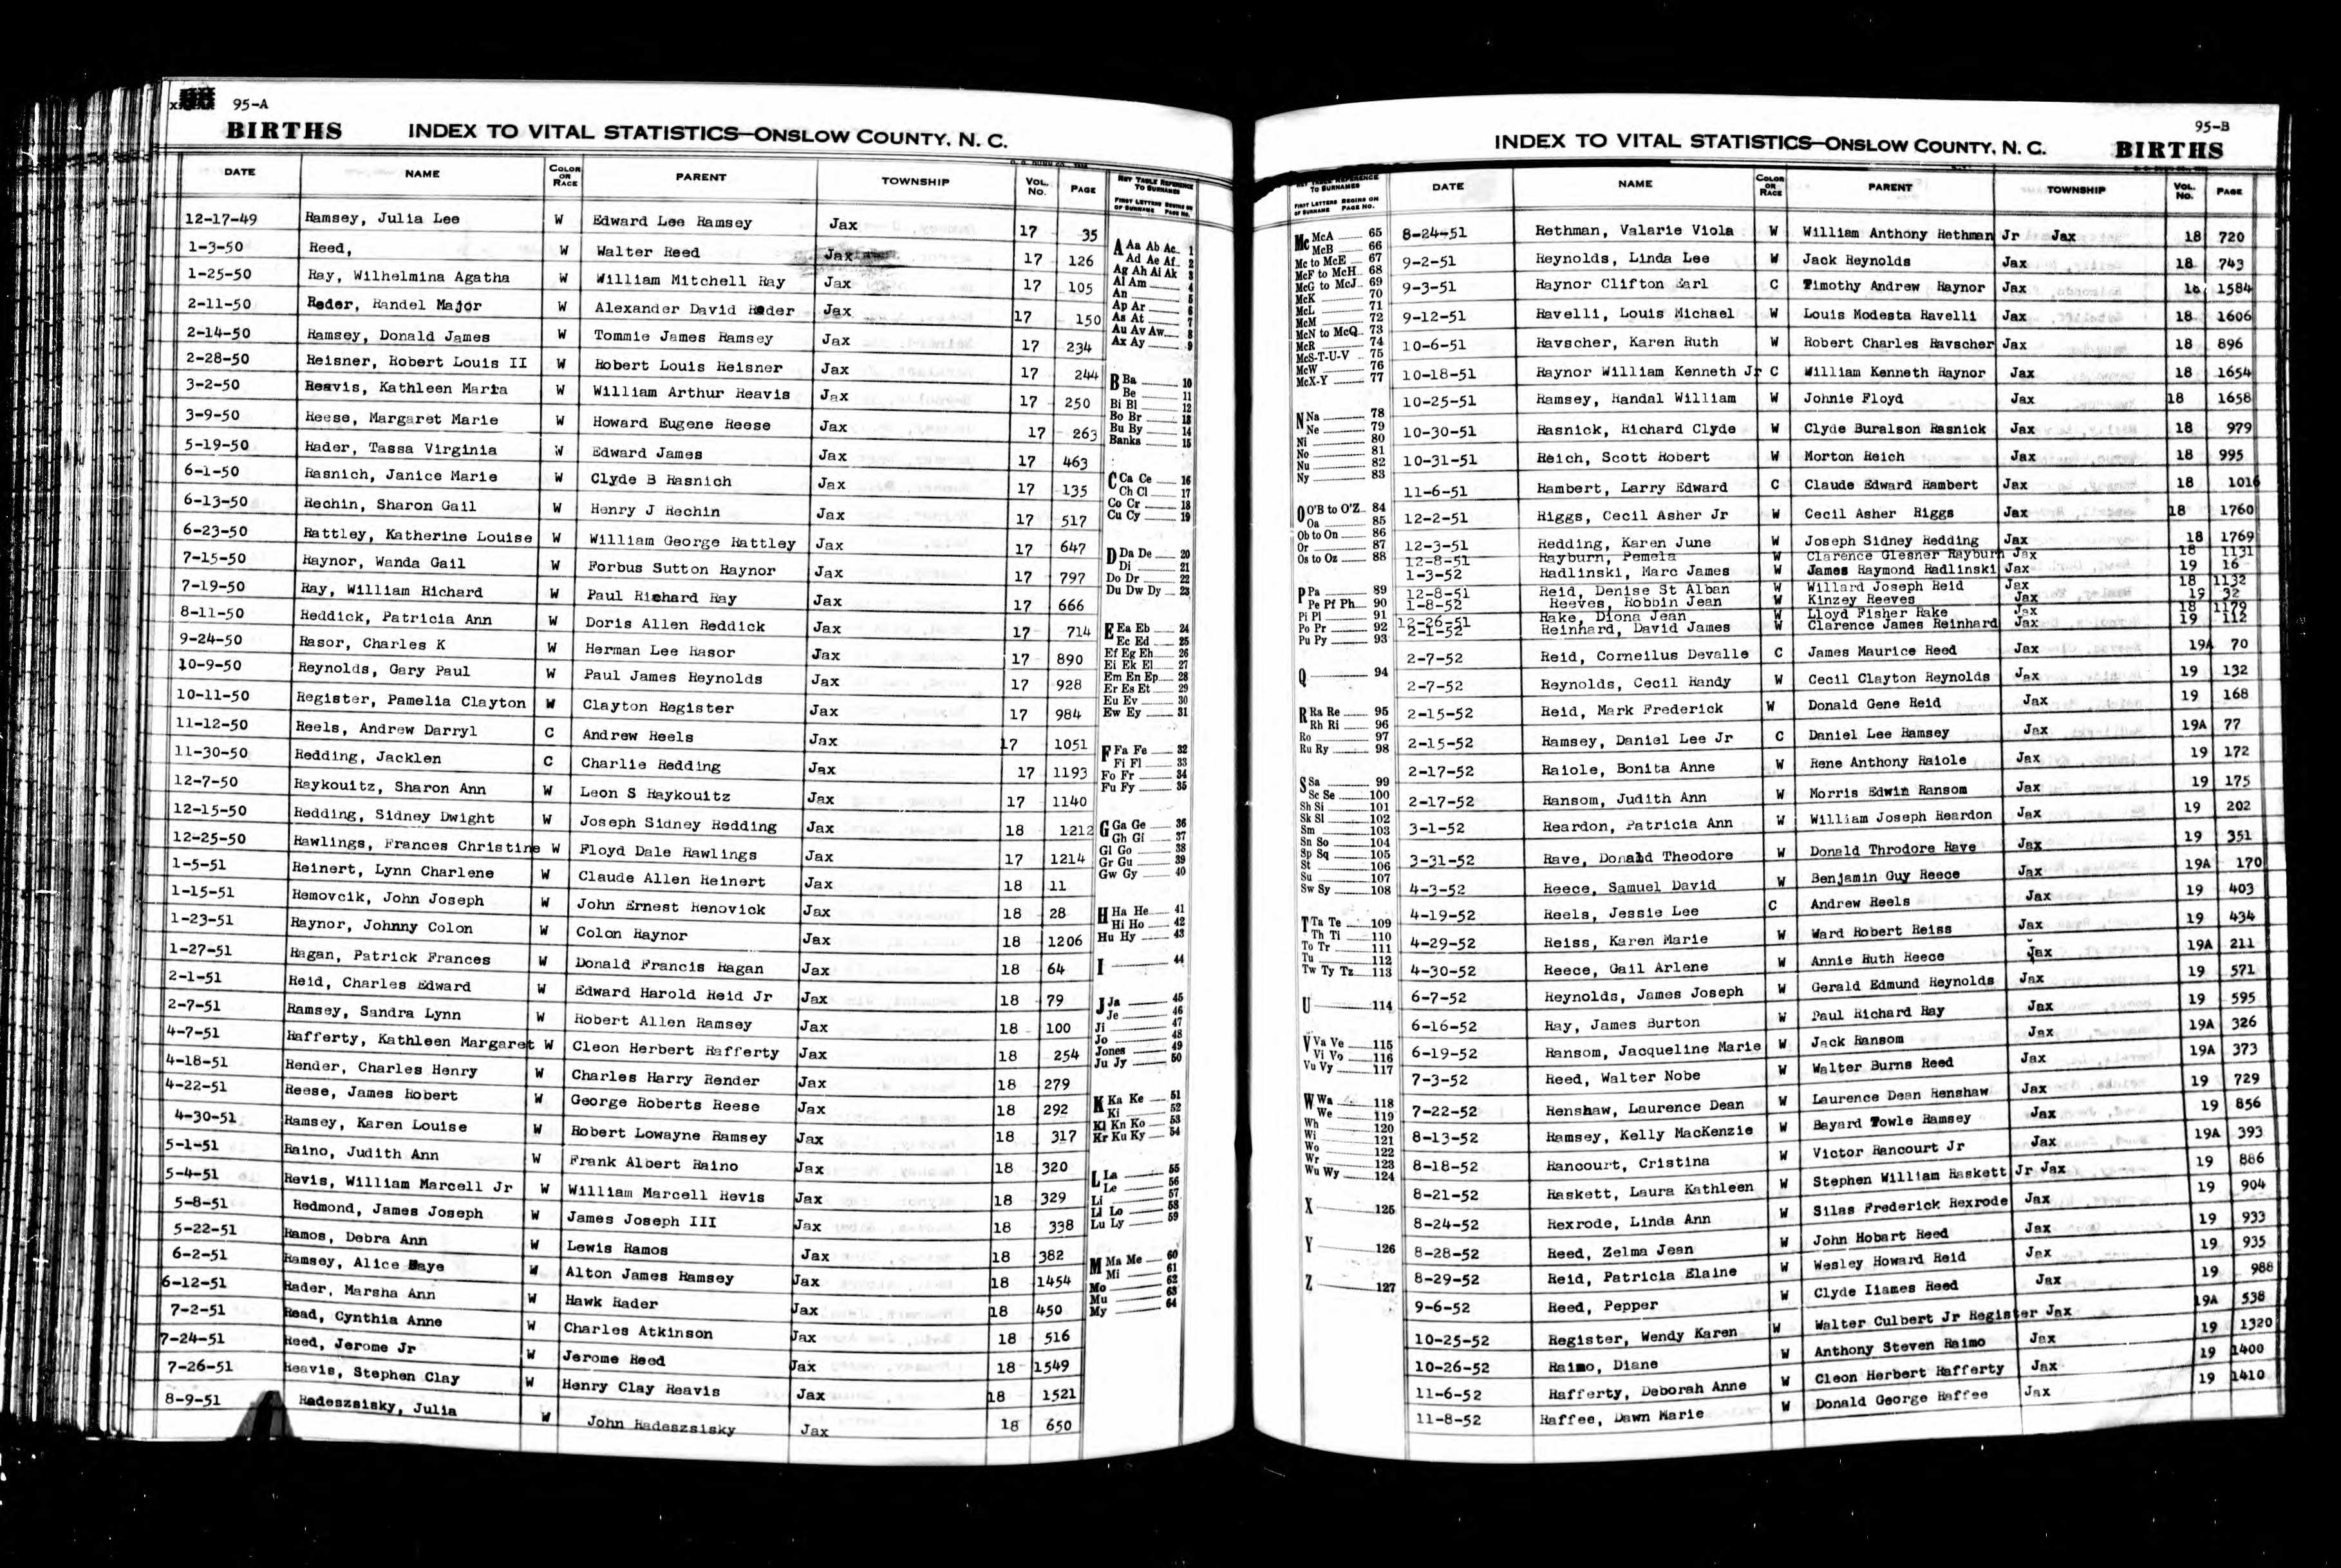 95-A
BIRTHS INDEX TO VITAL STATISTICS—ONSLOW COUNTY, N. C.
DATE NAME COLOR OR RACE PARENT TOWNSHIP VOL. NO. PAGE
12-17-49 Ramsey, Julia Lee W Edward Lee Ramsey Jax 17 35
1-3-50 Reed, W Walter Reed Jax 17 126
1-25-50 Ray, Wilhelmina Agatha W William Mitchell Ray Jax 17 105
2-11-50 Reder, Randel Major W Alexander David Reder Jax 17 150
2-14-50 Ramsey, Donald James W Tommie James Ramsey Jax 17 234
2-28-50 Reisner, Robert Louis II W Robert Louis Reisner Jax 17 244
3-2-50 Reavis, Kathleen Maria W William Arthur Reavis Jax 17 250
3-9-50 Reese, Margaret Marie W Howard Eugene Reese Jax 17 263
5-19-50 Rader, Tassa Virginia W Edward James Jax 17 463
6-1-50 Rasnich, Janice Marie W Clyde B Rasnich Jax 17 135
6-13-50 Rechin, Sharon Gail W Henry J Rechin Jax 17 517
6-23-50 Rattley, Katherine Louise W William George Rattley Jax 17 647
7-15-50 Raynor, Wanda Gail W Forbus Sutton Raynor Jax 17 797
7-19-50 Ray, William Richard W Paul Richard Ray Jax 17 666
8-11-50 Reddick, Patricia Ann W Doris Allen Reddick Jax 17 714
9-24-50 Rasor, Charles K W Herman Lee Rasor Jax 17 890
10-9-50 Reynolds, Gary Paul W Paul James Reynolds Jax 17 928
10-11-50 Register, Pamelia Clayton W Clayton Register Jax 17 984
11-12-50 Reels, Andrew Darryl C Andrew Reels Jax 17 1051
11-30-50 Redding, Jacklen C Charlie Redding Jax 17 1193
12-7-50 Raykouitz, Sharon Ann W Leon S Raykouitz Jax 17 1140
12-15-50 Redding, Sidney Dwight W Joseph Sidney Redding Jax 18 1212
12-25-50 Rawlings, Frances Christine W Floyd Dale Rawlings Jax 17 1214
1-5-51 Reinert, Lynn Charlene W Claude Allen Reinert Jax 18 11
1-15-51 Removcik, John Joseph W John Ernest Renovick Jax 18 28
1-23-51 Raynor, Johnny Colon W Colon Raynor Jax 18 1206
1-27-51 Ragan, Patrick Frances W Donald Francis Ragan Jax 18 64
2-1-51 Reid, Charles Edward W Edward Harold Reid Jr Jax 18 79
2-7-51 Ramsey, Sandra Lynn W Robert Allen Ramsey Jax 18 100
4-7-51 Rafferty, Kathleen Margaret W Cleon Herbert Rafferty Jax 18 254
4-18-51 Render, Charles Henry W Charles Harry Render Jax 18 279
4-22-51 Reese, James Robert W George Roberts Reese Jax 18 292
4-30-51 Ramsey, Karen Louise W Robert Lowayne Ramsey Jax 18 317
5-1-51 Raino, Judith Ann W Frank Albert Raino Jax 18 320
5-4-51 Revis, William Marcell Jr W William Marcell Revis Jax 18 329
5-8-51 Redmond, James Joseph W James Joseph III Jax 18 338
5-22-51 Ramos, Debra Ann W Lewis Ramos Jax 18 382
6-2-51 Ramsey, Alice Maye W Alton James Ramsey Jax 18 1454
6-12-51 Rader, Marsha Ann W Hawk Rader Jax 18 450
7-2-51 Read, Cynthia Anne W Charles Atkinson Jax 18 516
7-24-51 Reed, Jerome Jr W Jerome Reed Jax 18 1549
7-26-51 Reavis, Stephen Clay W Henry Clay Reavis Jax 18 1521
8-9-51 Radeszsisky, Julia W John Radeszsisky Jax 18 650
KEY TABLE REFERENCE TO SURNAMES
FIRST LETTERS OF SURNAME BEGINS ON PAGE NO.
A Aa Ab Ac 1
Ad Ae Af 2
Ag Ah Ai Ak 3
Al Am 4
An 5
Ap Ar 6
As At 7
Au Av Aw 8
Ax Ay 9
B Ba 10
Be 11
Bi Bl 12
Bo Br 13
Bu By 14
Banks 15
C Ca Ce 16
Ch Cl 17
Co Cr 18
Cu Cy 19
D Da De 20
Di 21
Do Dr 22
Du Dw Dy 23
E Ea Eb 24
Ec Ed 25
Ef Eg Eh 26
Ei Ek El 27
Em En Ep 28
Er Es Et 29
Eu Ev 30
Ew Ey 31
F Fa Fe 32
Fi Fl 33
Fo Fr 34
Fu Fy 35
G Ga Ge 36
Gh Gi 37
Gl Go 38
Gr Gu 39
Gw Gy 40
H Ha He 41
Hi Ho 42
Hu Hy 43
I 44
J Ja 45
Je 46
Ji 47
Jo 48
Jones 49
Ju Jy 50
K Ka Ke 51
Ki 52
Kl Kn Ko 53
Kr Ku Ky 54
L La 55
Le 56
Li 57
Ll Lo 58
Lu Ly 59
M Ma Me 60
Mi 61
Mo 62
Mu 63
My 64
95-B
INDEX TO VITAL STATISTICS—ONSLOW COUNTY, N. C. BIRTHS
KEY TABLE REFERENCE TO SURNAMES
FIRST LETTERS OF SURNAME BEGINS ON PAGE NO.
Mc McA 65
McB 66
Mc to McE 67
McF to McH 68
McG to McJ 69
McK 70
McL 71
McM 72
McN to McQ 73
McR 74
McS-T-U-V 75
McW 76
McX-Y 77
N Na 78
Ne 79
Ni 80
No 81
Nu 82
Ny 83
O O'B to O'Z 84
Oa 85
Ob to On 86
Or 87
Os to Oz 88
P Pa 89
Pe Pf Ph 90
Pi Pl 91
Po Pr 92
Pu Py 93
Q 94
R Ra Re 95
Rh Ri 96
Ro 97
Ru Ry 98
S Sa 99
Sc Se 100
Sh Si 101
Sk Sl 102
Sm 103
Sn So 104
Sp Sq 105
St 106
Su 107
Sw Sy 108
T Ta Te 109
Th Ti 110
To Tr 111
Tu 112
Tw Ty Tz 113
U 114
V Va Ve 115
Vi Vo 116
Vu Vy 117
W Wa 118
We 119
Wh 120
Wi 121
Wo 122
Wr 123
Wu Wy 124
X 125
Y 126
Z 127
DATE NAME COLOR OR RACE PARENT TOWNSHIP VOL. NO. PAGE
8-24-51 Rethman, Valarie Viola W William Anthony Rethman Jr Jax 18 720
9-2-51 Reynolds, Linda Lee W Jack Reynolds Jax 18 743
9-3-51 Raynor Clifton Earl C Timothy Andrew Raynor Jax 18 1584
9-12-51 Ravelli, Louis Michael W Louis Modesta Ravelli Jax 18 1606
10-6-51 Ravscher, Karen Ruth W Robert Charles Ravscher Jax 18 896
10-18-51 Raynor William Kenneth Jr C William Kenneth Raynor Jax 18 1654
10-25-51 Ramsey, Randal William W Johnie Floyd Jax 18 1658
10-30-51 Rasnick, Richard Clyde W Clyde Buralson Rasnick Jax 18 979
10-31-51 Reich, Scott Robert W Morton Reich Jax 18 995
11-6-51 Rambert, Larry Edward C Claude Edward Rambert Jax 18 1016
12-2-51 Riggs, Cecil Asher Jr W Cecil Asher Riggs Jax 18 1760
12-3-51 Redding, Karen June W Joseph Sidney Redding Jax 18 1769
12-8-51 Rayburn, Pemela W Clarence Glesner Rayburn Jax 18 1131
1-3-52 Radlinski, Marc James W James Raymond Radlinski Jax 19 16
12-8-51 Reid, Denise St Alban W Willard Joseph Reid Jax 18 1132
1-8-52 Reeves, Robbin Jean W Kinzey Reeves Jax 19 32
12-26-51 Rake, Diona Jean W Lloyd Fisher Rake Jax 18 1179
2-1-52 Reinhard, David James W Clarence James Reinhard Jax 19 112
2-7-52 Reid, Corneilus Devalle C James Maurice Reed Jax 19A 70
2-7-52 Reynolds, Cecil Randy W Cecil Clayton Reynolds Jax 19 132
2-15-52 Reid, Mark Frederick W Donald Gene Reid Jax 19 168
2-15-52 Ramsey, Daniel Lee Jr C Daniel Lee Ramsey Jax 19A 77
2-17-52 Raiole, Bonita Anne W Rene Anthony Raiole Jax 19 172
2-17-52 Ransom, Judith Ann W Morris Edwin Ransom Jax 19 175
3-1-52 Reardon, Patricia Ann W William Joseph Reardon Jax 19 202
3-31-52 Rave, Donald Theodore W Donald Throdore Rave Jax 19 351
4-3-52 Reece, Samuel David W Benjamin Guy Reece Jax 19A 170
4-19-52 Reels, Jessie Lee C Andrew Reels Jax 19 403
4-29-52 Reiss, Karen Marie W Ward Robert Reiss Jax 19 434
4-30-52 Reece, Gail Arlene W Annie Ruth Reece Jax 19A 211
6-7-52 Reynolds, James Joseph W Gerald Edmund Reynolds Jax 19 571
6-16-52 Ray, James Burton W Paul Richard Ray Jax 19 595
6-19-52 Ransom, Jacqueline Marie W Jack Ransom Jax 19A 326
7-3-52 Reed, Walter Nobe W Walter Burns Reed Jax 19A 373
7-22-52 Renshaw, Laurence Dean W Laurence Dean Renshaw Jax 19 729
8-13-52 Ramsey, Kelly MacKenzie W Bayard Towle Ramsey Jax 19 856
8-18-52 Rancourt, Cristina W Victor Rancourt Jr Jax 19A 393
8-21-52 Raskett, Laura Kathleen W Stephen William Raskett Jr Jax 19 886
8-24-52 Rexrode, Linda Ann W Silas Frederick Rexrode Jax 19 904
8-28-52 Reed, Zelma Jean W John Hobart Reed Jax 19 933
8-29-52 Reid, Patricia Elaine W Wesley Howard Reid Jax 19 935
9-6-52 Reed, Pepper W Clyde Iiames Reed Jax 19 988
10-25-52 Register, Wendy Karen W Walter Culbert Jr Register Jax 19A 538
10-26-52 Raimo, Diane W Anthony Steven Raimo Jax 19 1320
11-6-52 Rafferty, Deborah Anne W Cleon Herbert Rafferty Jax 19 1400
11-8-52 Raffee, Dawn Marie W Donald George Raffee Jax 19 1410